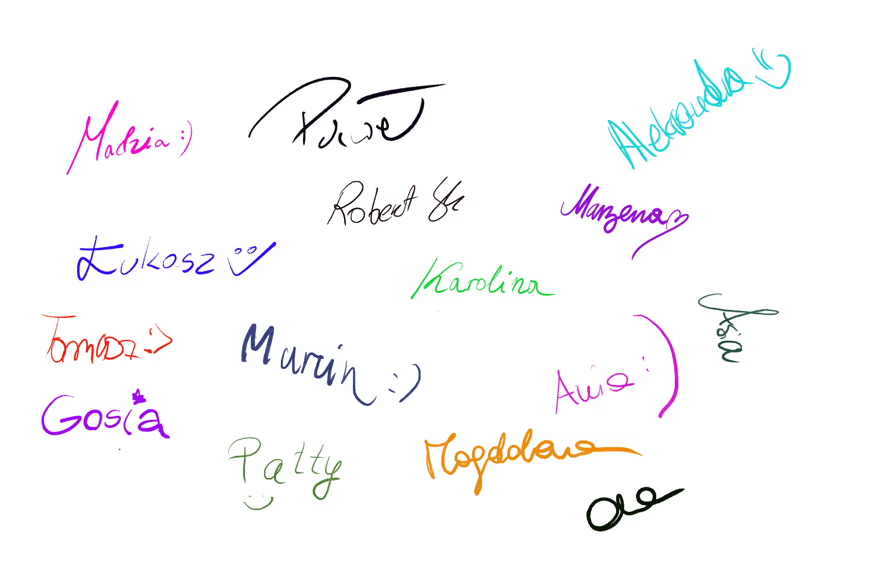 Aleksandra :)
Madzia :)
Paweł
Robert
Marzena
Łukasz :)
Karolina
Asia
Tomasz :)
Marcin :)
Ania :)
Gosia
Patty :)
Magdalena
Ola